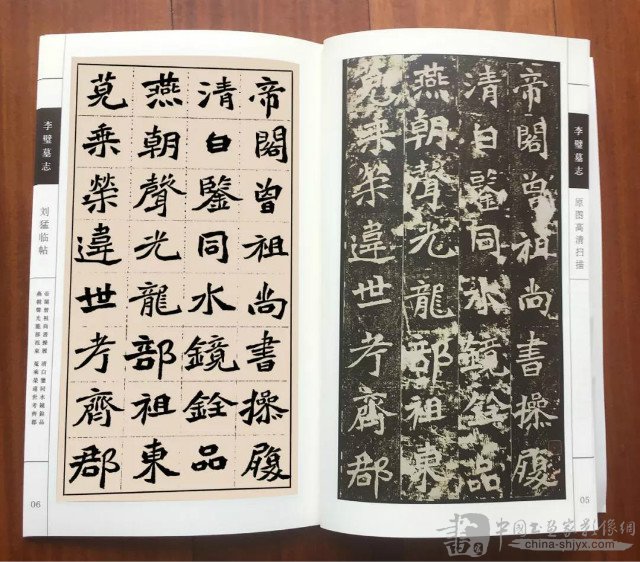 李璧墓志
原图高清扫描
05
帝閣曾祖尚書操履
清白鑒同水鏡銓品
燕朝聲光龍部祖東
莧乘榮違世考齊郡
帝閣曾祖尚書操履
清白鑒同水鏡銓品
燕朝聲光龍部祖東
莧乘榮違世考齊郡
李璧墓志
刘猛临帖
帝閣曾祖尚書操履 清白鑒同水鏡銓品
燕朝聲光龍部祖東 莧乘榮違世考齊郡
06
書
中國书画家影像網
china-shjyx.com